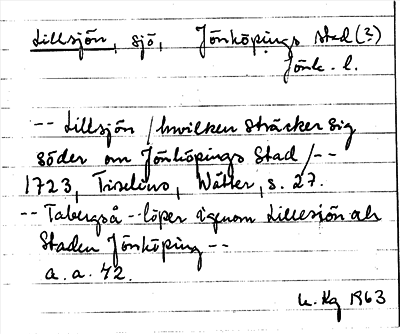 Lillsjön, sjö, Jönköpings stad (?)
Jönk. l.
-- Lillsjön /hwilken sträcker sig
söder om Jönköpings Stad/--
1723, Tiselius, Wätter, s. 27.
-- Tabergså -- löper igenom Lillesjön och
Staden Jönköping --
a. a. 42.
1963